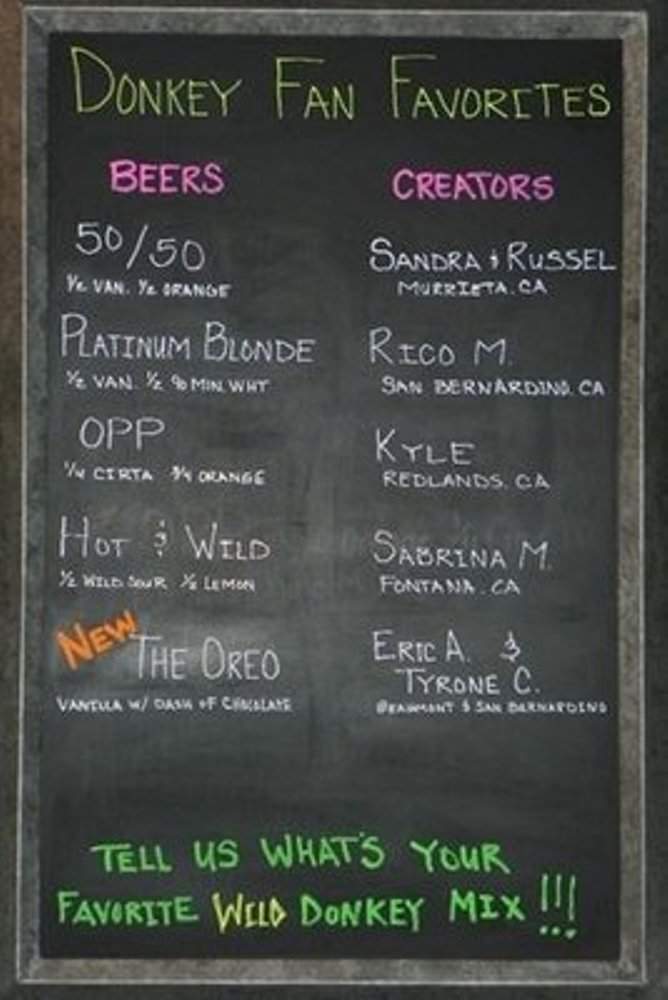 DONKEY FAN FAVORITES
BEERS
CREATORS
50/50
SANDRA & RUSSEL
1/2 VAN. 1/2 ORANGE
MURRIETA. CA
PLATINUM BLONDE
RICO M.
1/2 VAN. 1/2 90 MIN. WHT
SAN BERNARDINO. CA
OPP
KYLE
1/4 CIRTA 3/4 ORANGE
REDLANDS. CA
HOT & WILD
SABRINA M.
1/2 WILD SOUR 1/2 LEMON
FONTANA. CA
NEW
THE OREO
ERIC A. &
TYRONE C.
VANILLA W/ DASH OF CHOCOLATE
BEAUMONT & SAN BERNARDINO
TELL US WHAT'S YOUR
FAVORITE WILD DONKEY MIX !!!